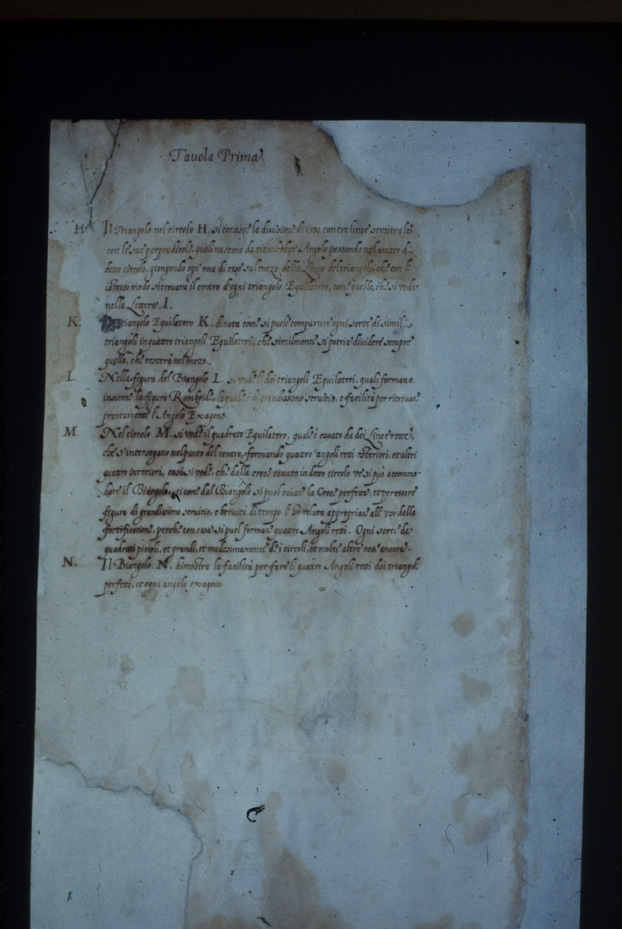 Tavola Prima
H Il Triangolo nel circolo H. si conosce la divisione di esso con tre linee semitrasse
con le sue perpendicoli, quali nascono da ciascedun Angolo passando nel centro di
detto circolo, giongendo ogn'una di esse sul mezo della del triangolo, che con l'
istesso modo si trovara il centro d'ogni triangolo Equilatero, come quello, che si vede
nella Lettera I.
K. Triangolo Equilatero K. dinota come si puole compartire ogni sorte di simili
triangoli in quattro triangoli Equilateri, che similmente si potria dividere sempre
quello, che resterà nel mezo.
L Nella figura del Biangolo L. si vede li doi triangoli Equilateri, quali formano
insieme la figura Romboide, la quale è di grandissimo servitio, e facilità per ritrovar
prontamente l'Angolo Exagono.
M Nel circolo M. si vede il quadrato Equilatero, qual'è cavato da dei linee rette,
che s'intersegano nel punto del centro, formando quattro angoli retti esteriori, et altri
quattro interiori, così si vede, che dalla croce cavata in detto circolo ve si può accomo-
dare il Biangolo, si come dal Biangolo si puol cavare la Croce perfetta, et per essere
figura di grandissimo servitio, e brevità di tempo l'hò voluta appropriare all'uso delle
fortificationi, perche con essa si puol formar quattro Angoli retti. Ogni sorte de
quadrati picioli, et grandi, et medesimamente de i circoli, et molte altre cose ancora.
N. Il Biangolo N. dimostra la facilità per fare li quattro Angoli retti doi triangoli
perfetti, et ogni angolo exagono.